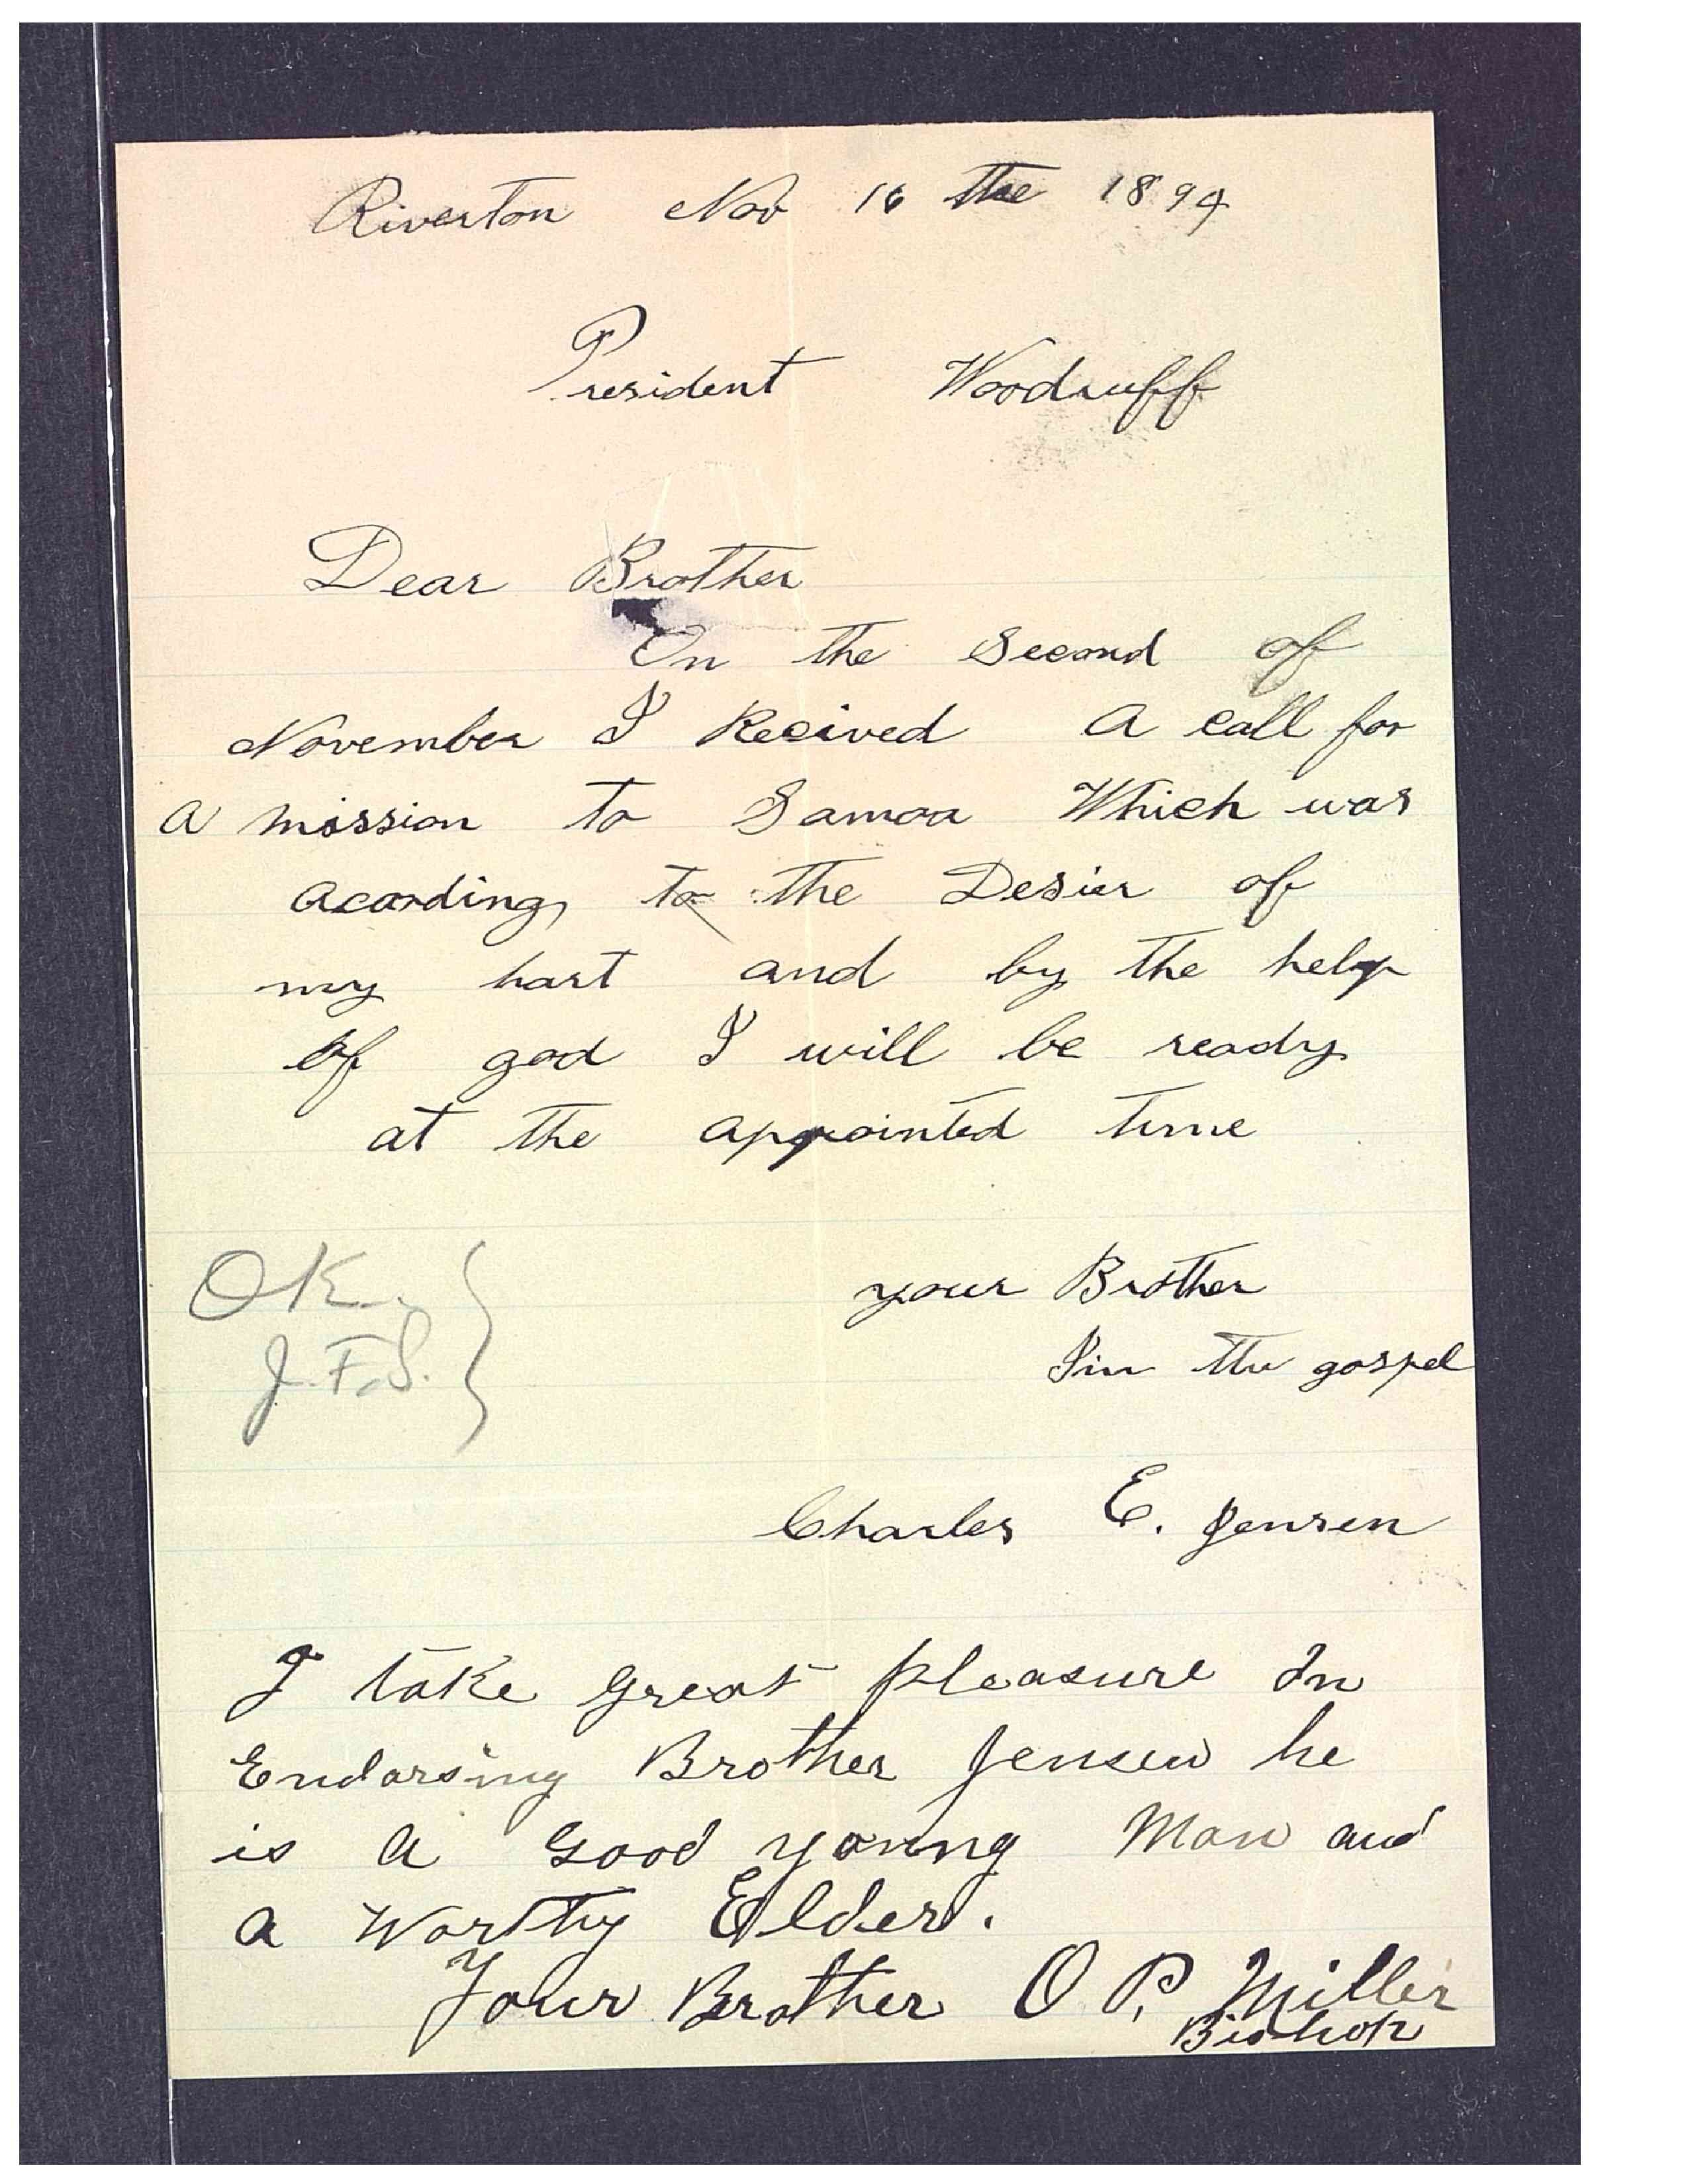 Riverton Nov 16 the 1894
President Woodruff
Dear Brother
On the Second of
November I Recived A call for
A mission to Samoa Which was
Acording to the Desier of
my hart and by the help
of god I will be ready
at the appointed time
your Brother
Iin the gospel
OK.
J.F.S.
Charles E. Jensen
I take great pleasure In
Endorsing Brother Jensen he
is a Good young Man and
a Worthy Elder.
Your Brother O P. Miller
Bishop